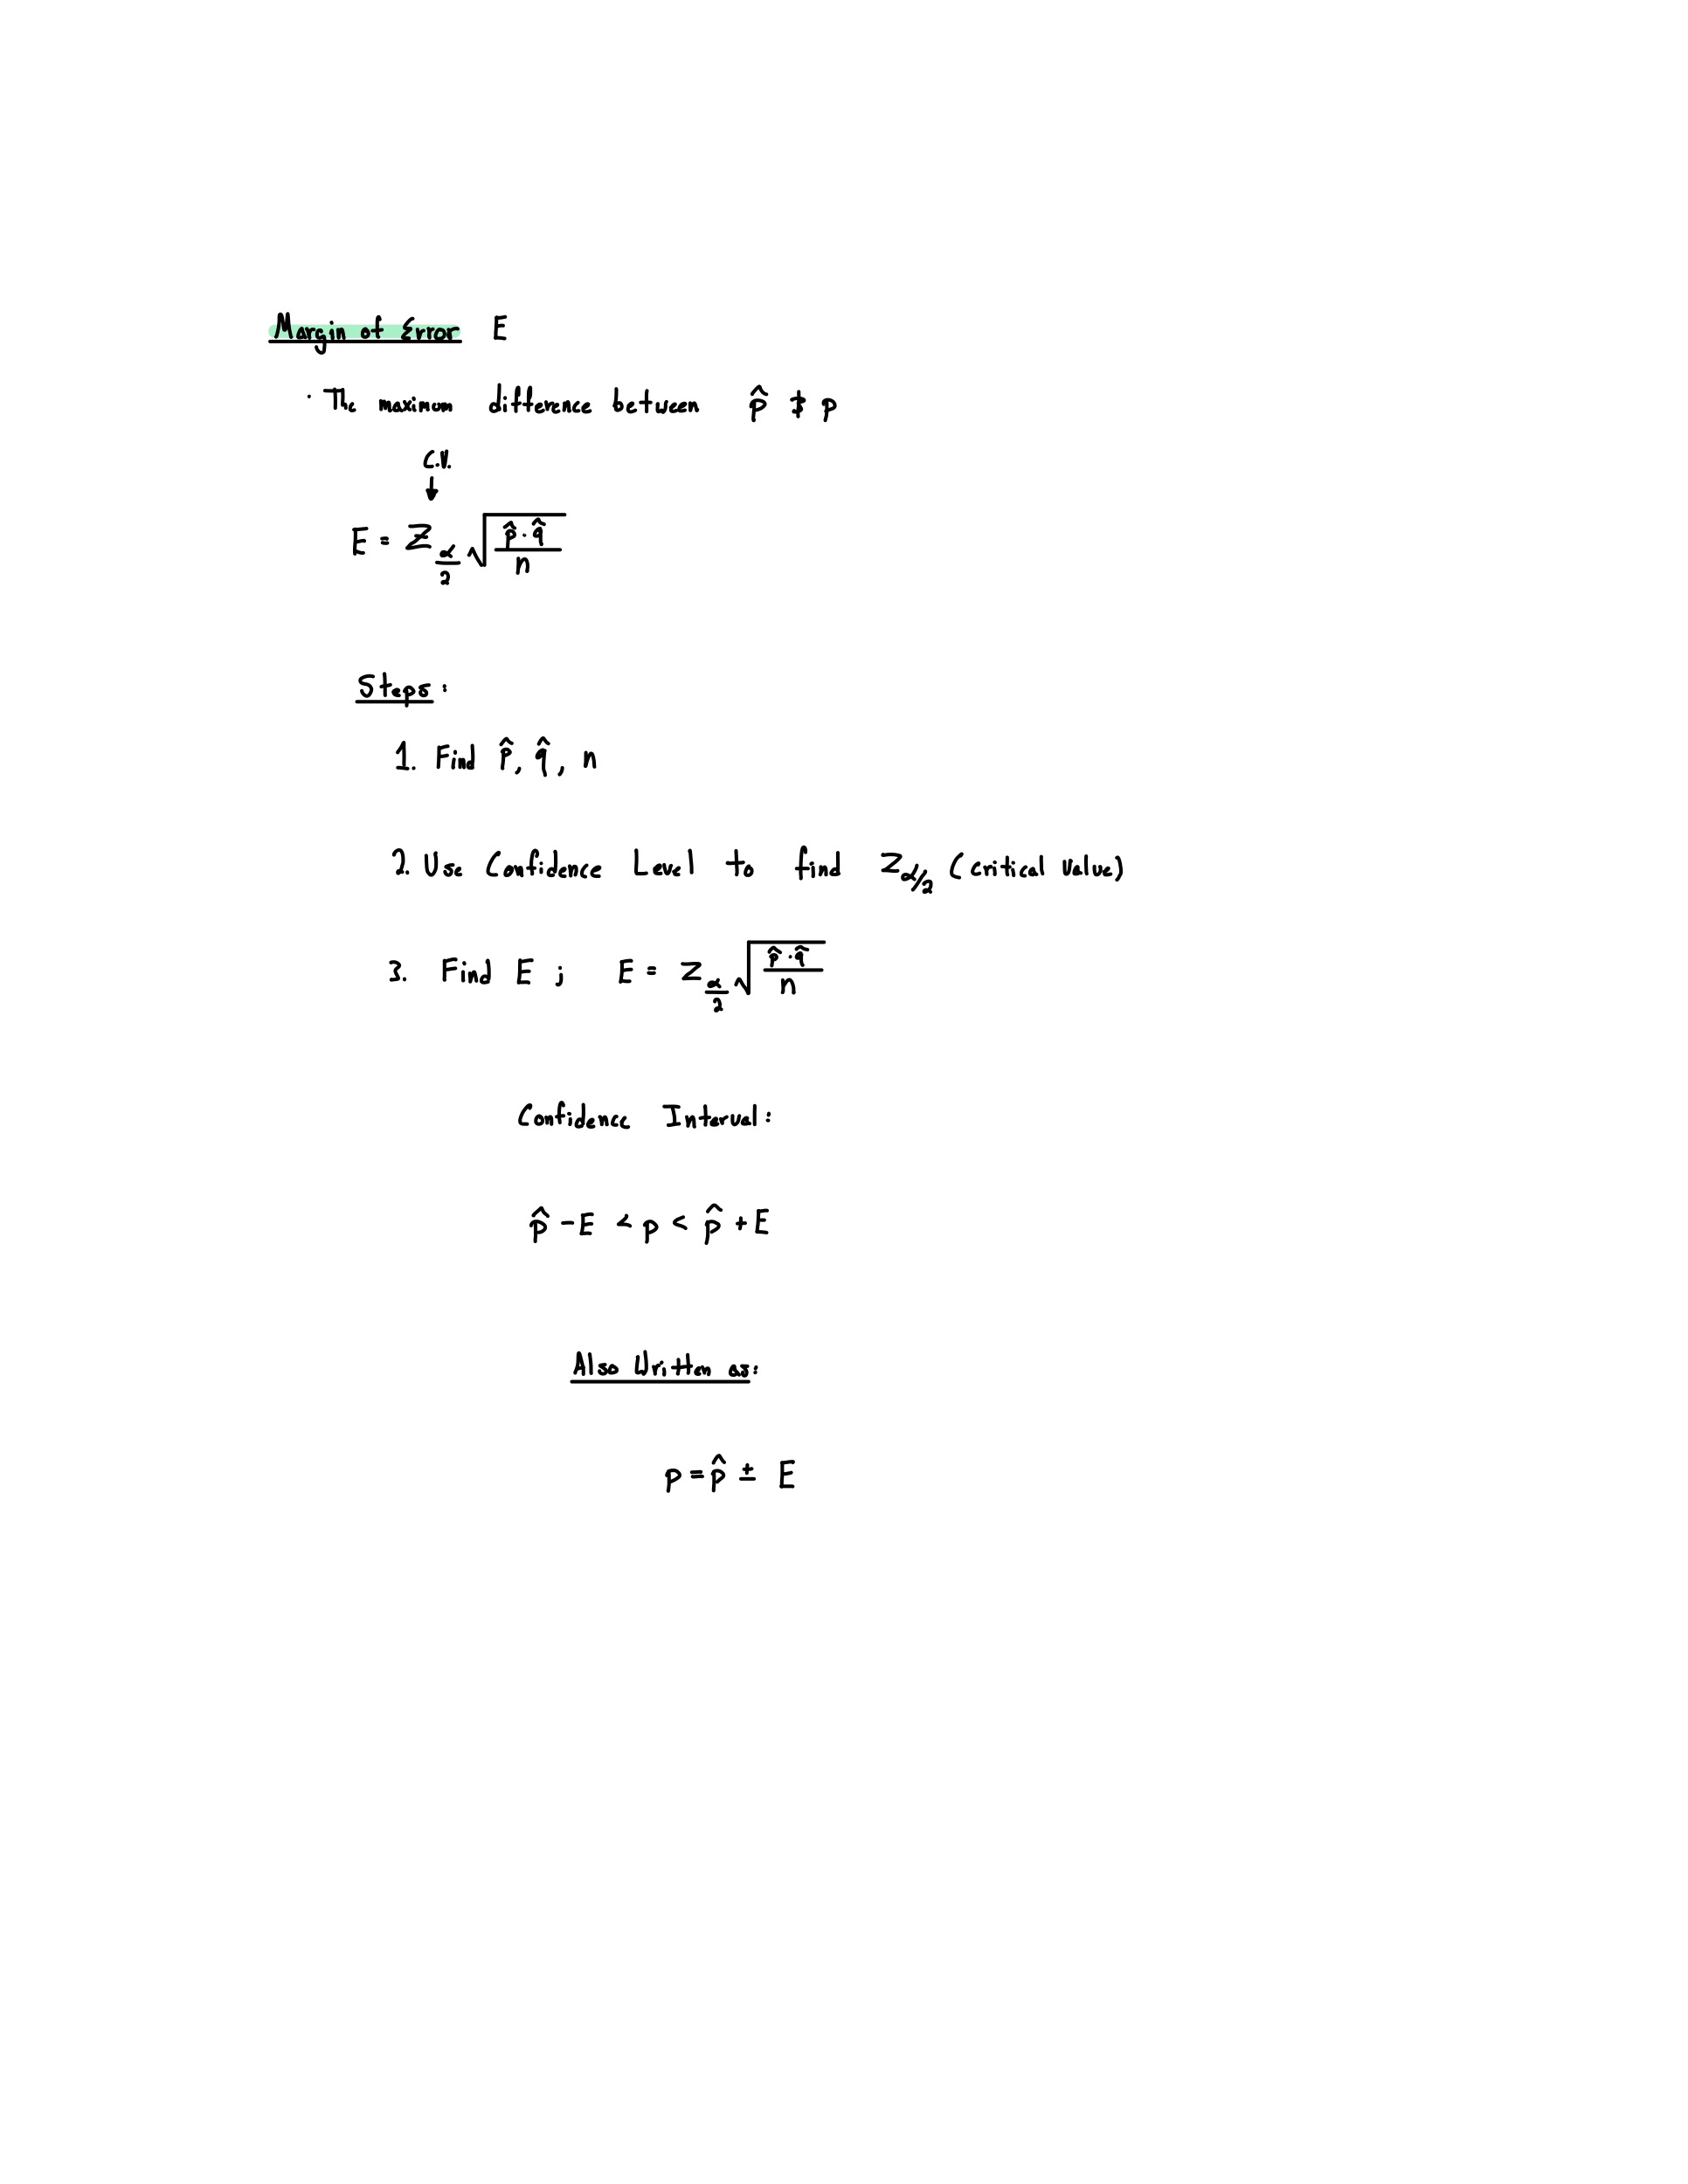 Margin of Error E
· The maximum difference between p̂ & p
C.V.
↓
E = Z_(α/2) √(p̂ · q̂ / n)
Steps:
1. Find p̂, q̂, n
2. Use Confidence Level to find Z_α/2 (critical value)
3. Find E ; E = Z_(α/2) √(p̂ · q̂ / n)
Confidence Interval:
p̂ - E < p < p̂ + E
Also Written as:
p = p̂ ± E